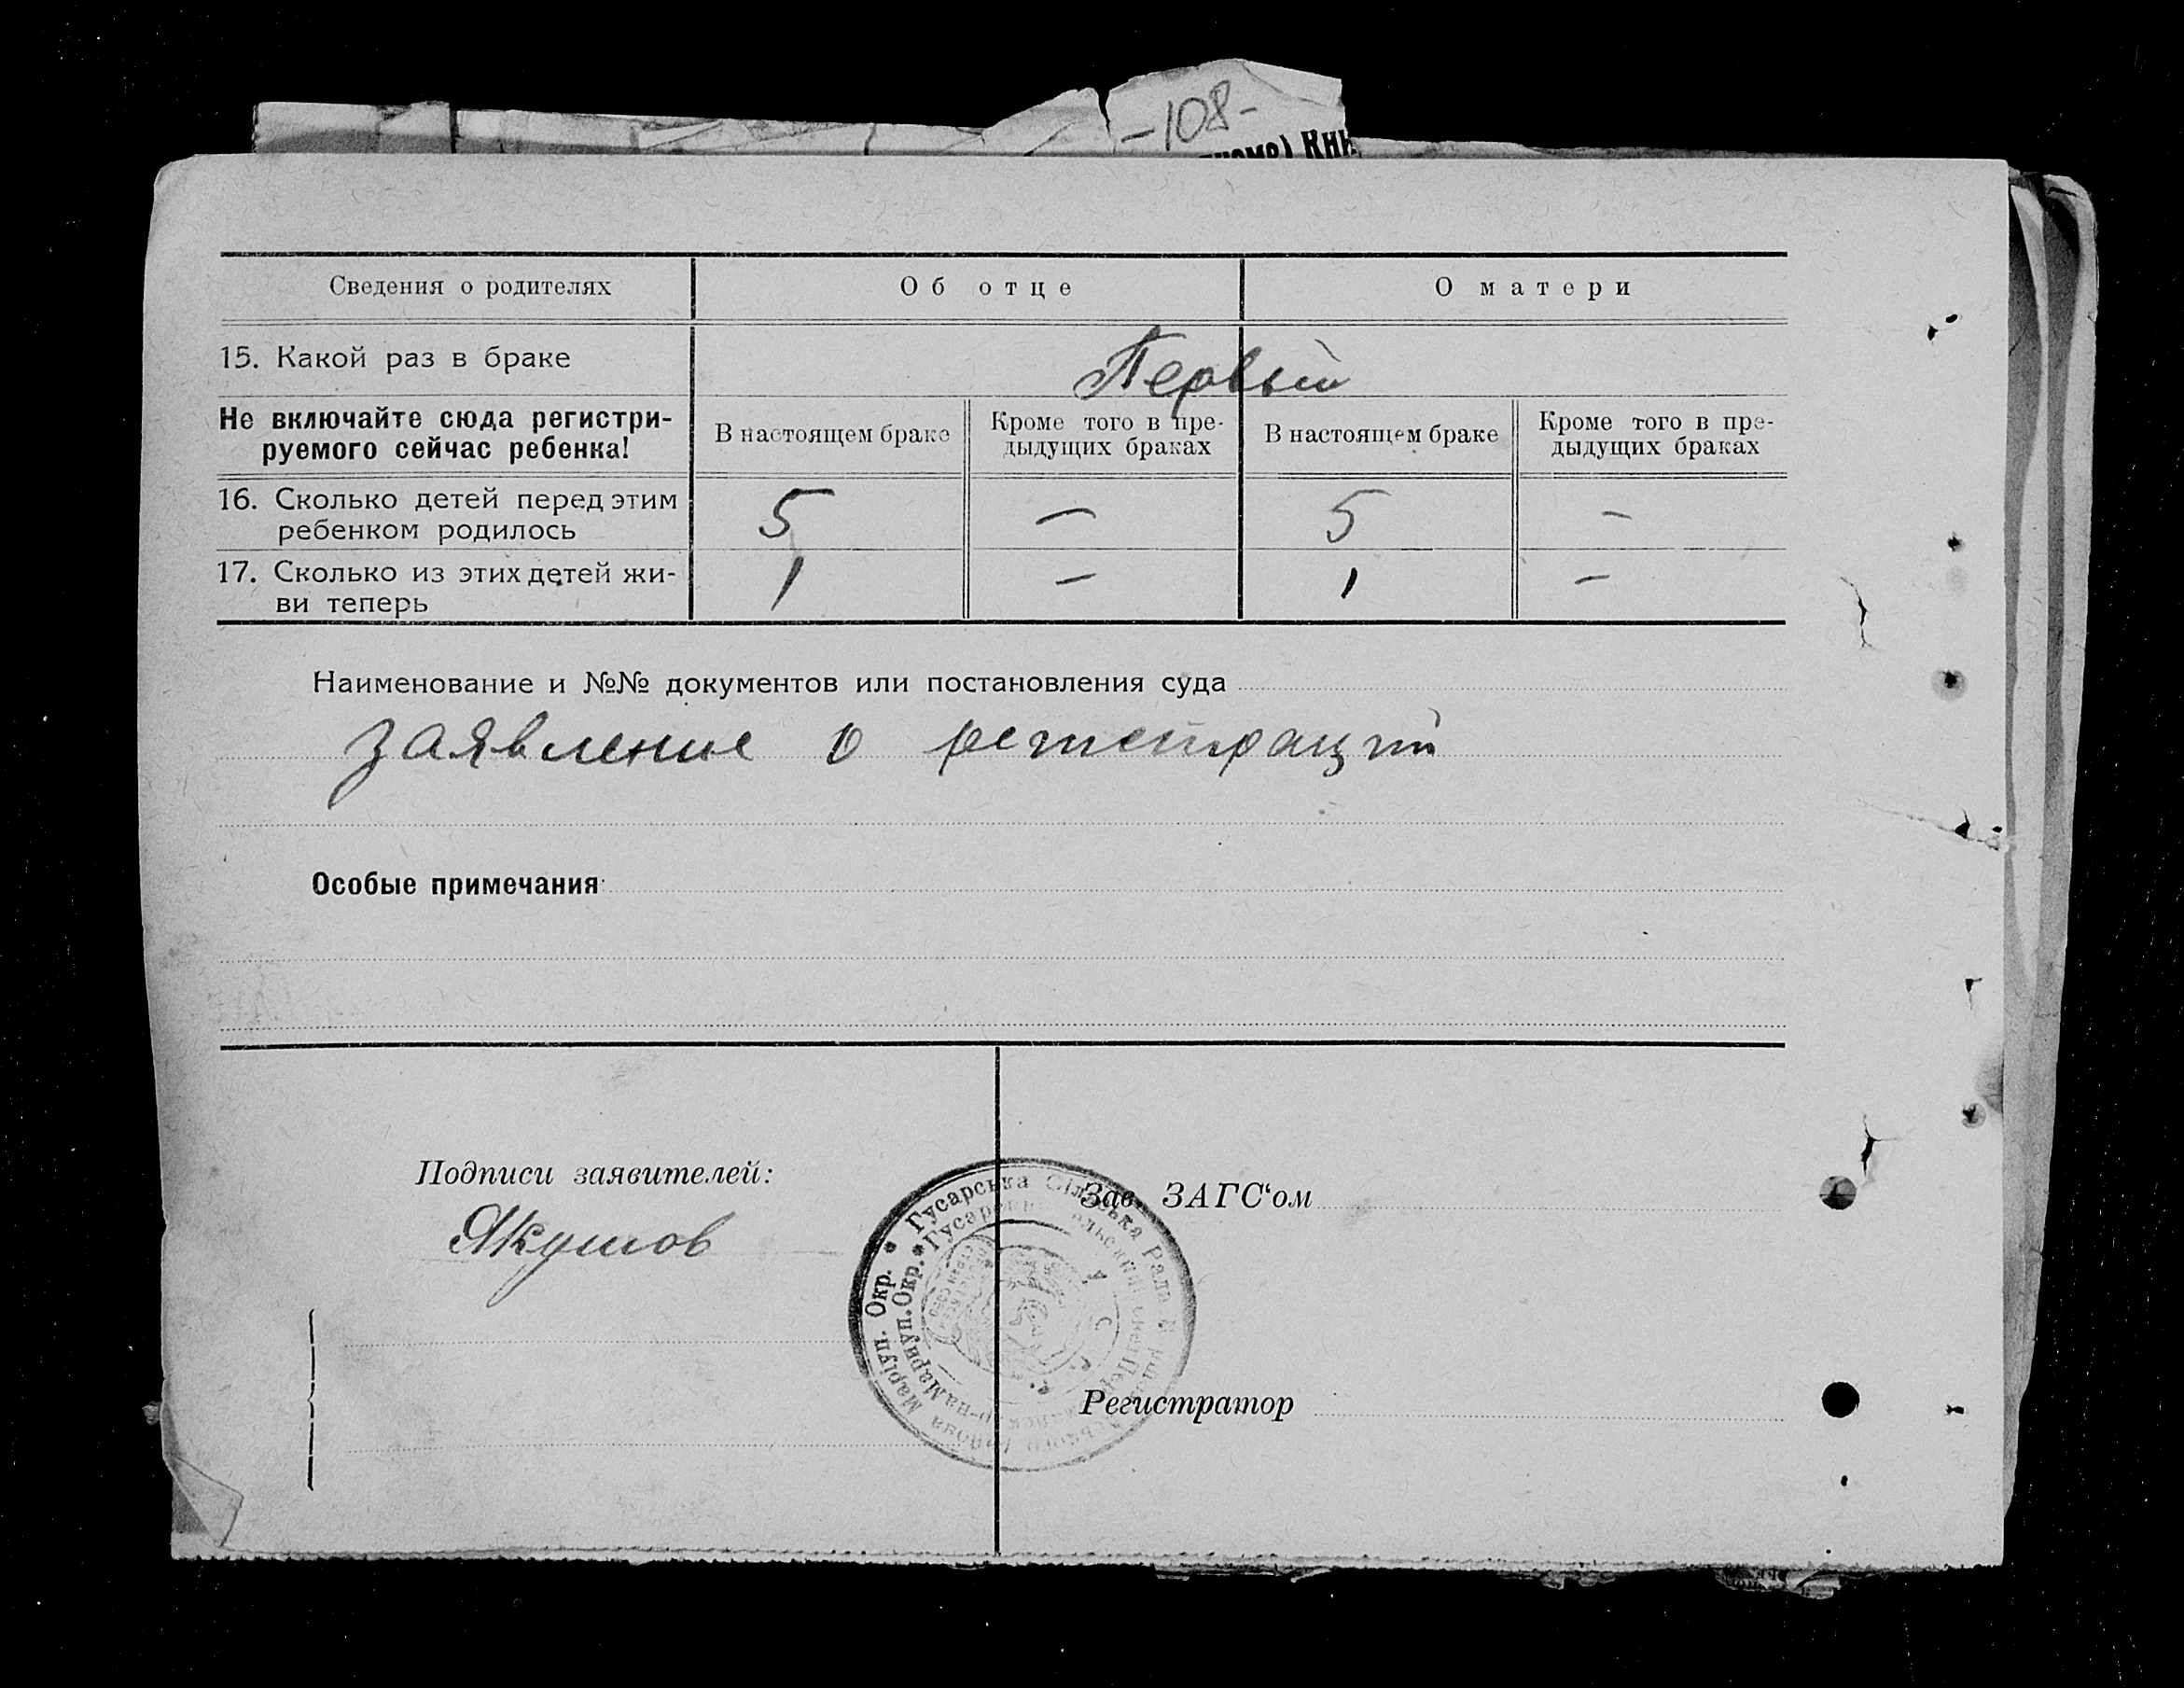 -108-
Сведения о родителях Об отце О матери
15. Какой раз в браке Первый
Не включайте сюда регистри-
руемого сейчас ребенка!
В настоящем браке
Кроме того в пре-
дыдущих браках
В настоящем браке
Кроме того в пре-
дыдущих браках
16. Сколько детей перед этим
ребенком родилось
5 — 5 —
17. Сколько из этих детей жи-
ви теперь
1 — 1 —
Наименование и №№ документов или постановления суда
заявление о регистрации
Особые примечания
Подписи заявителей:
Якушов
Зав. ЗАГС‘ом
Регистратор
Гусарська Сільська Рада
Маріуп. Окр.
Мариуп. Окр.